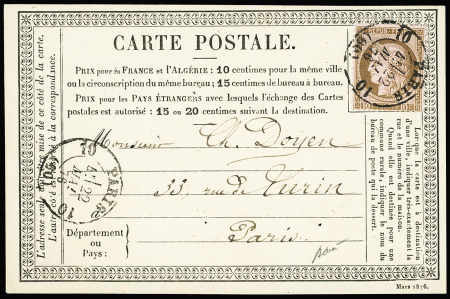 CARTE POSTALE.
PRIX pour la FRANCE et l'ALGÉRIE: 10 centimes pour la même ville
ou la circonscription du même bureau; 15 centimes de bureau à bureau.
PRIX pour les PAYS ÉTRANGERS avec lesquels l'échange des Cartes
postales est autorisé : 15 ou 20 centimes suivant la destination.
L'adresse seule doit être mise de ce côté de la carte.
L'autre côté est réservé à la correspondance.
Monsieur Ch. Doyen
33, rue de Turin
Paris
Département
ou
Pays:
Lorsque la carte est à destination
d'une ville, indiquer très-exactement la
rue et le numéro de la maison.
Quand elle est destinée pour une
commune rurale, indiquer le nom du
bureau de poste qui la dessert.
PARIS
10
22
MAI
PARIS
10
MAI
Mars 1876.